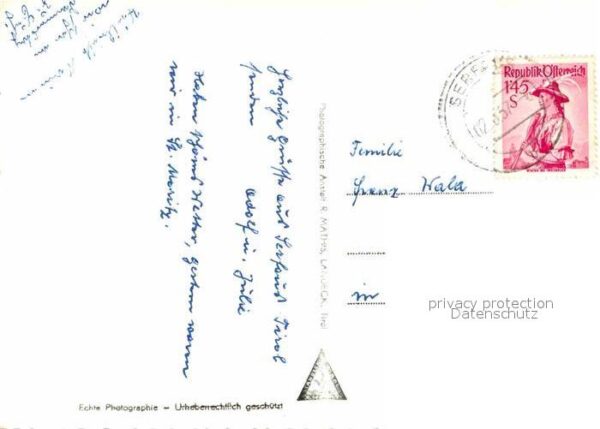 Herzliche Grüße aus Serfaus Tirol
senden
Adolf u. Julie
Haben schönes Wetter, gestern waren
wir in St. Moritz.
Photographische Anstalt R. MATHIS, LANDECK, Tirol
Echte Photographie – Urheberrechtlich geschützt
SERFAUS
Republik Österreich
1.45
S
Familie
Franz Wald
in
privacy protection
Datenschutz